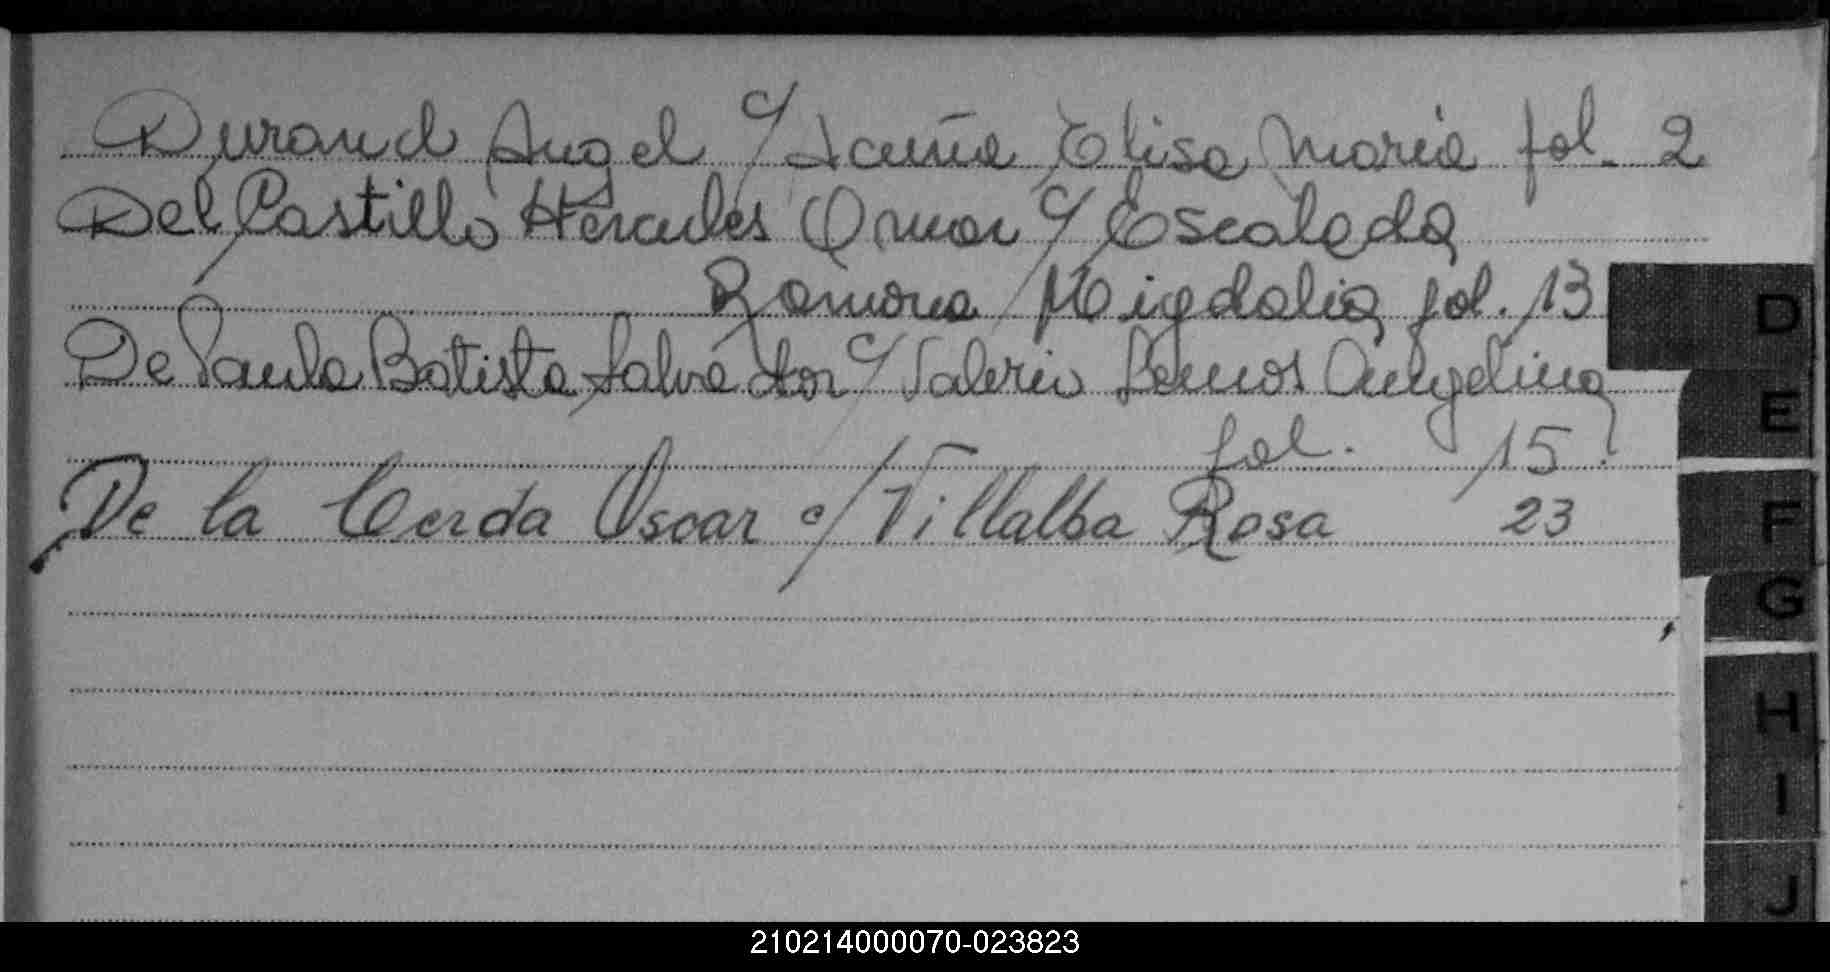 Durand Angel c/ Acuña Elisa Maria fol. 2
Del Castillo Hércules Omar c/ Escalada
Ramona Migdalia fol. 13
De Paula Batista Salvador c/ Valerio Lemos Angelina
fol. 15
De la Cerda Oscar c/ Villalba Rosa 23
D
E
F
G
H
I
J
210214000070-023823